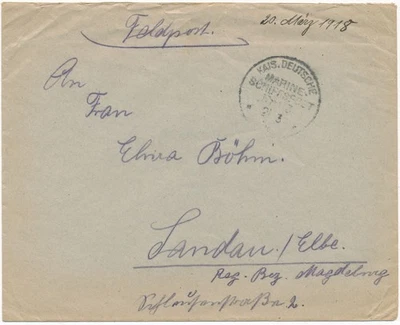 Feldpost.
20. März 1918
KAIS. DEUTSCHE
MARINE-
SCHIFFSPOST
3
An
Frau
Elvira Böhm.
Landau./Elbe.
Reg. Bez. Magdeburg
2.